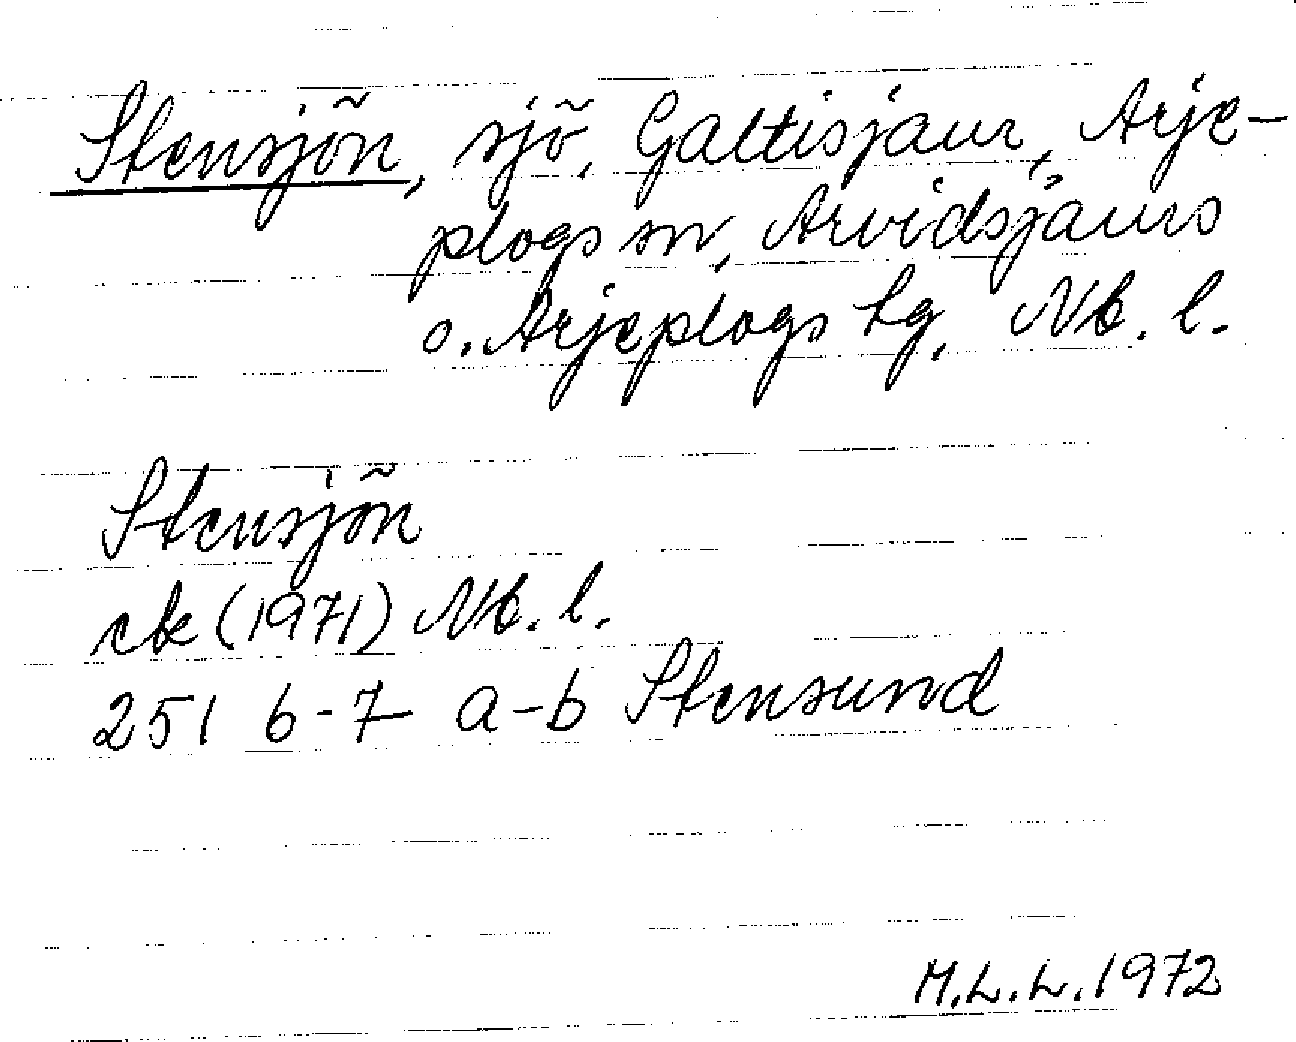 Stensjön, sjö, Galtisjaur, Arje-
plogs sn, Arvidsjaurs
o. Arjeplogs lg, Nb. l.
Stensjön
ek (1971) Nb. l.
251 6-7 a-b Stensund
M.L.L. 1972